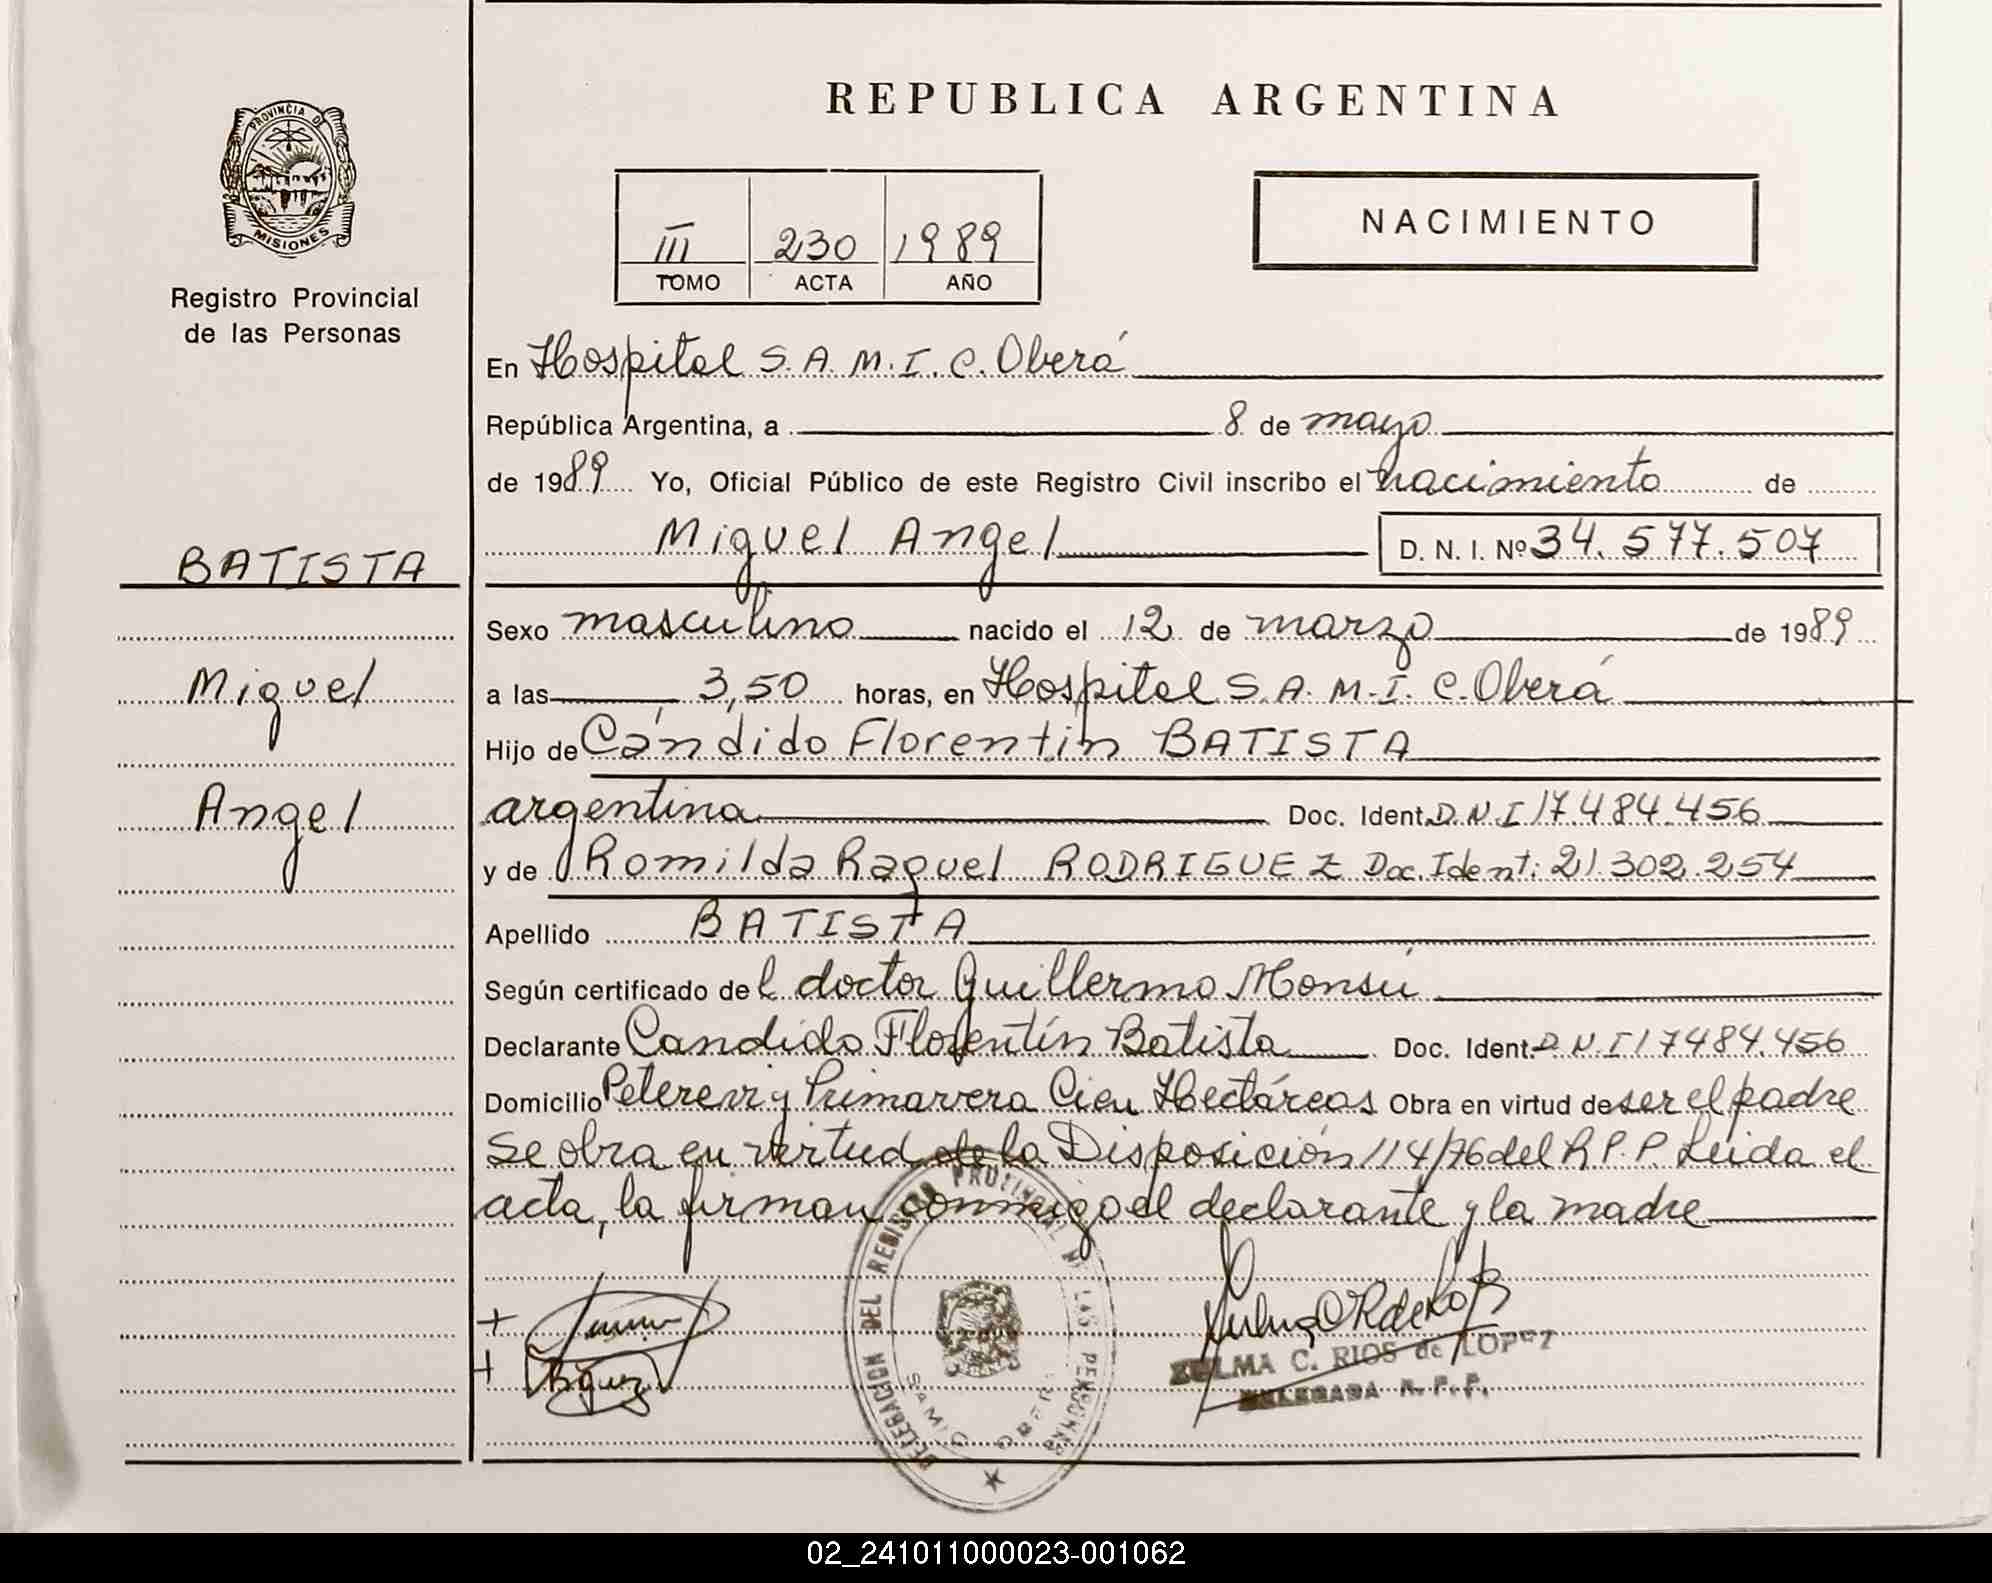 REPUBLICA ARGENTINA
PROVINCIA DE
MISIONES
Registro Provincial
de las Personas
III 230 1989
TOMO ACTA AÑO
NACIMIENTO
BATISTA
Miguel
Angel
En Hospital S.A.M.I.C. Oberá
República Argentina, a 8 de mayo
de 1989 Yo, Oficial Público de este Registro Civil inscribo el nacimiento de
Miguel Angel D. N. I. Nº 34.577.507
Sexo masculino nacido el 12 de marzo de 1989
a las 3,50 horas, en Hospital S.A.M.I.C. Oberá
Hijo de Cándido Florentin BATISTA
argentina Doc. Ident. D.N.I 17.484.456
y de Romilda Raquel RODRIGUEZ Doc. Ident: 21.302.254
Apellido BATISTA
Según certificado del doctor Guillermo Monsú
Declarante Candido Florentín Batista Doc. Ident. D.N.I 17484.456
Domicilio y Primavera Cien Hectáreas Obra en virtud de ser el padre
Se obra en virtud de la Disposición 114/76 del R.P.P. Leida el
acta, la firman conmigo el declarante y la madre
DELEGACION DEL REGISTRO PROVINCIAL DE LAS PERSONAS
SAMIC OBERA
ZULMA C. RIOS de LOPEZ
DELEGADA R. P. P.
02_241011000023-001062